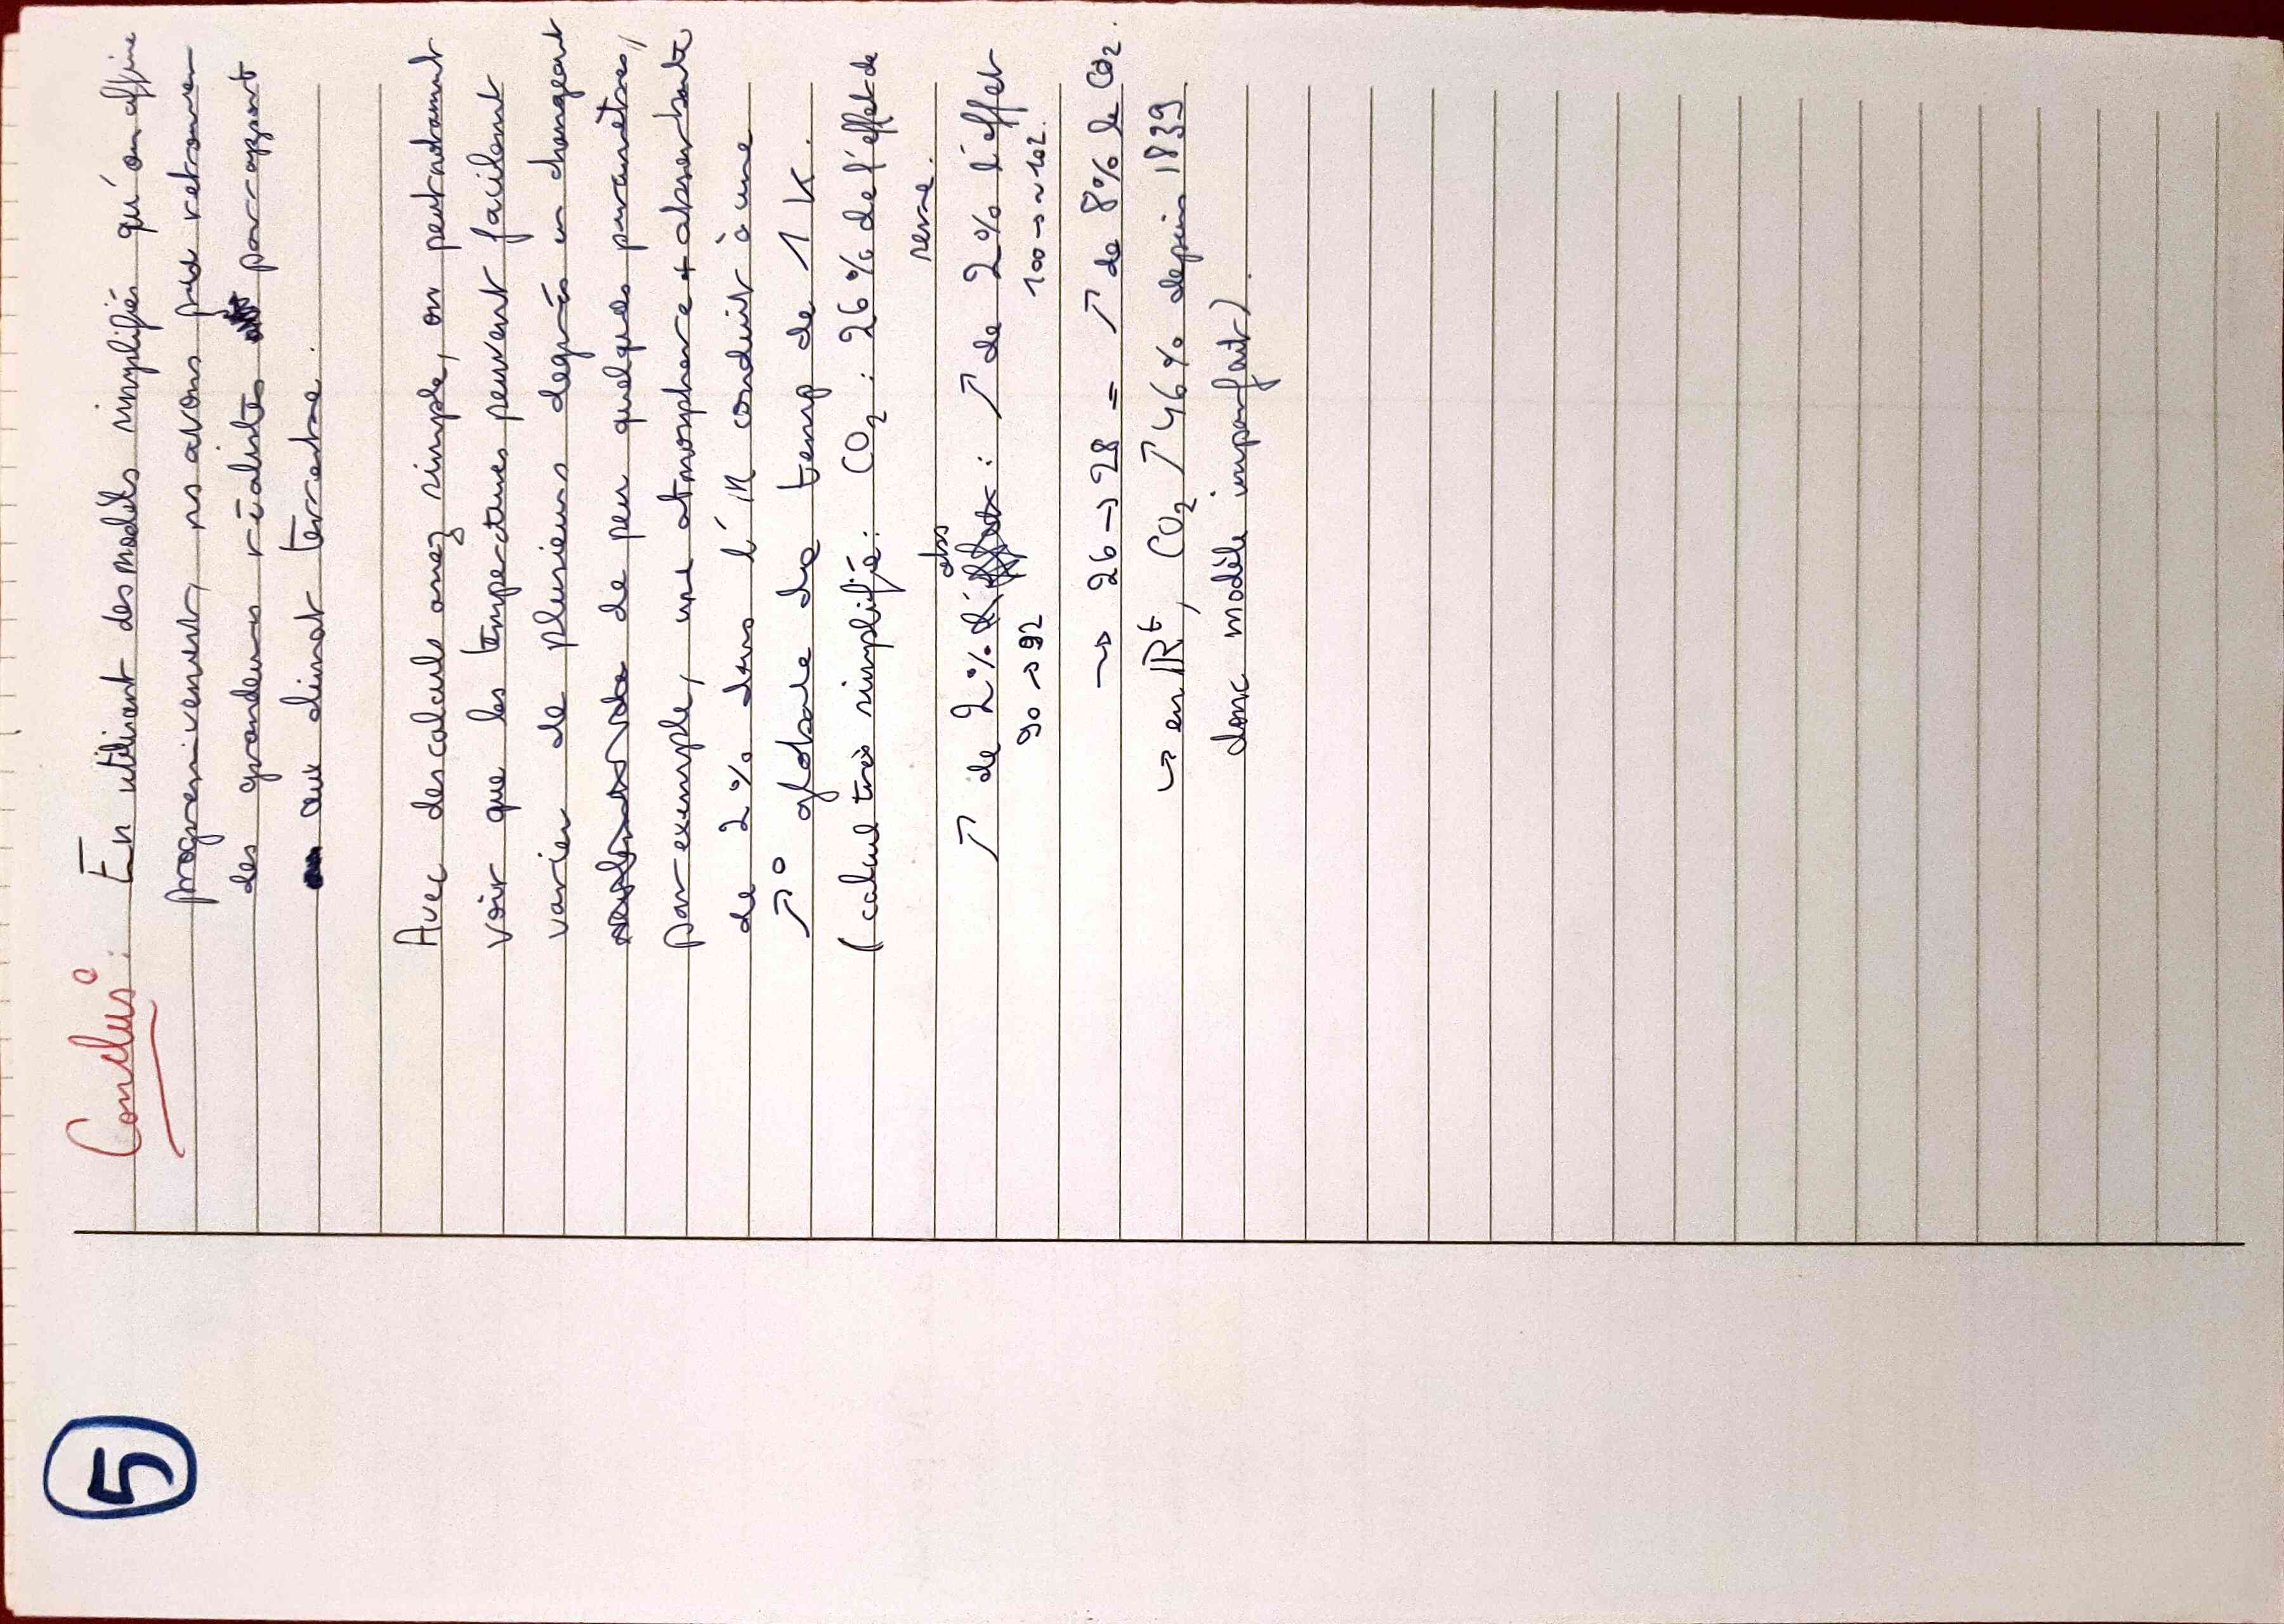 5
Conclus° : En utilisant des modèles simplifiés qu'on affine
progressivement, ns avons pu retrouver
des grandeurs réalistes par rapport
au climat terrestre.
Avec des calculs assez simple, on peut notamment
voir que les températures peuvent facilement
varier de plusieurs degrés en changeant
de peu quelques paramètres,
par exemple, une atmosphère + absorbante
de 2% dans l'IR conduit à une
↗° globale de temp de 1 K.
(calcul très simplifié : CO2 : 26% de l'effet de
serre.
↗ de 2% d'abs : ↗ de 2% l'effet
90 → 92 100 → ~102.
→ 26 → 28 = ↗ de 8% le CO2.
↳ en IRt, CO2 ↗ 46% depuis 1839
donc modèle imparfait).